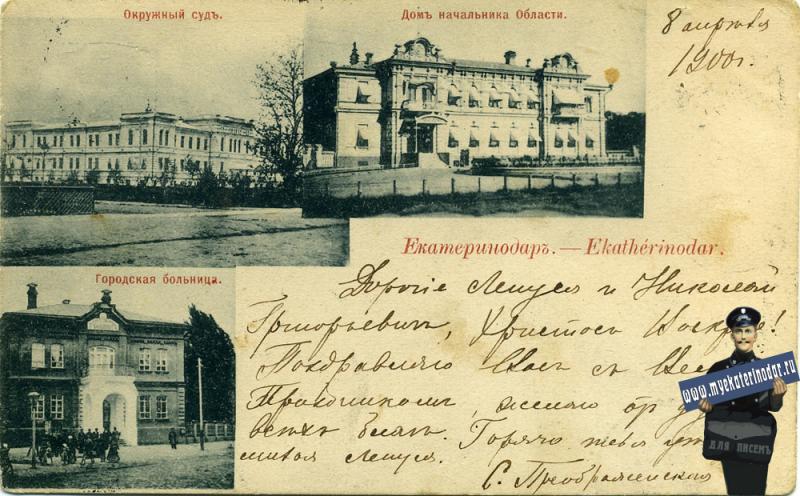 Окружный судъ.
Домъ начальника Области.
8 апрѣля
1900 г.
Екатеринодаръ. — Ekathérinodar.
Городская больница.
Дорогіе Лепуся и Николай
Григорьевичъ, Христосъ Воскресе!
Поздравляю Васъ съ
Праздникомъ, желаю отъ
всѣхъ благъ. Горячо тебя
Лепуся.
С. Преображенская
www.myekaterinodar.ru
ДЛЯ ПИСЕМЪ